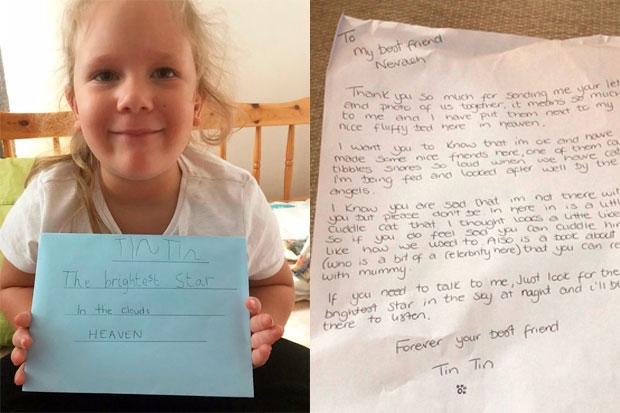 TIN TIN
The brightest Star
In the clouds
HEAVEN
To
My best friend
Nevaeh
Thank you so much for sending me your let
and photo of us together, it means so much
to me and I have put them next to my
nice fluffy bed here in heaven.
I want you to know that im ok and have
made some nice friends here, one of them ca
tibbles snores so loud when we have cat
I'm being fed and looked after well by the
angels.
I know you are sad that im not there wit
you but please dont be. In here is a littl
cuddle cat that I thought looks a little like
so if you do feel sad you can cuddle him
like how we used to. Also is a book about
(who is a bit of a celebrity here) that you can re
with mummy
If you need to talk to me, Just look for the
brightest star in the sky at night and i'll be
there to listen.
Forever your best friend
Tin Tin